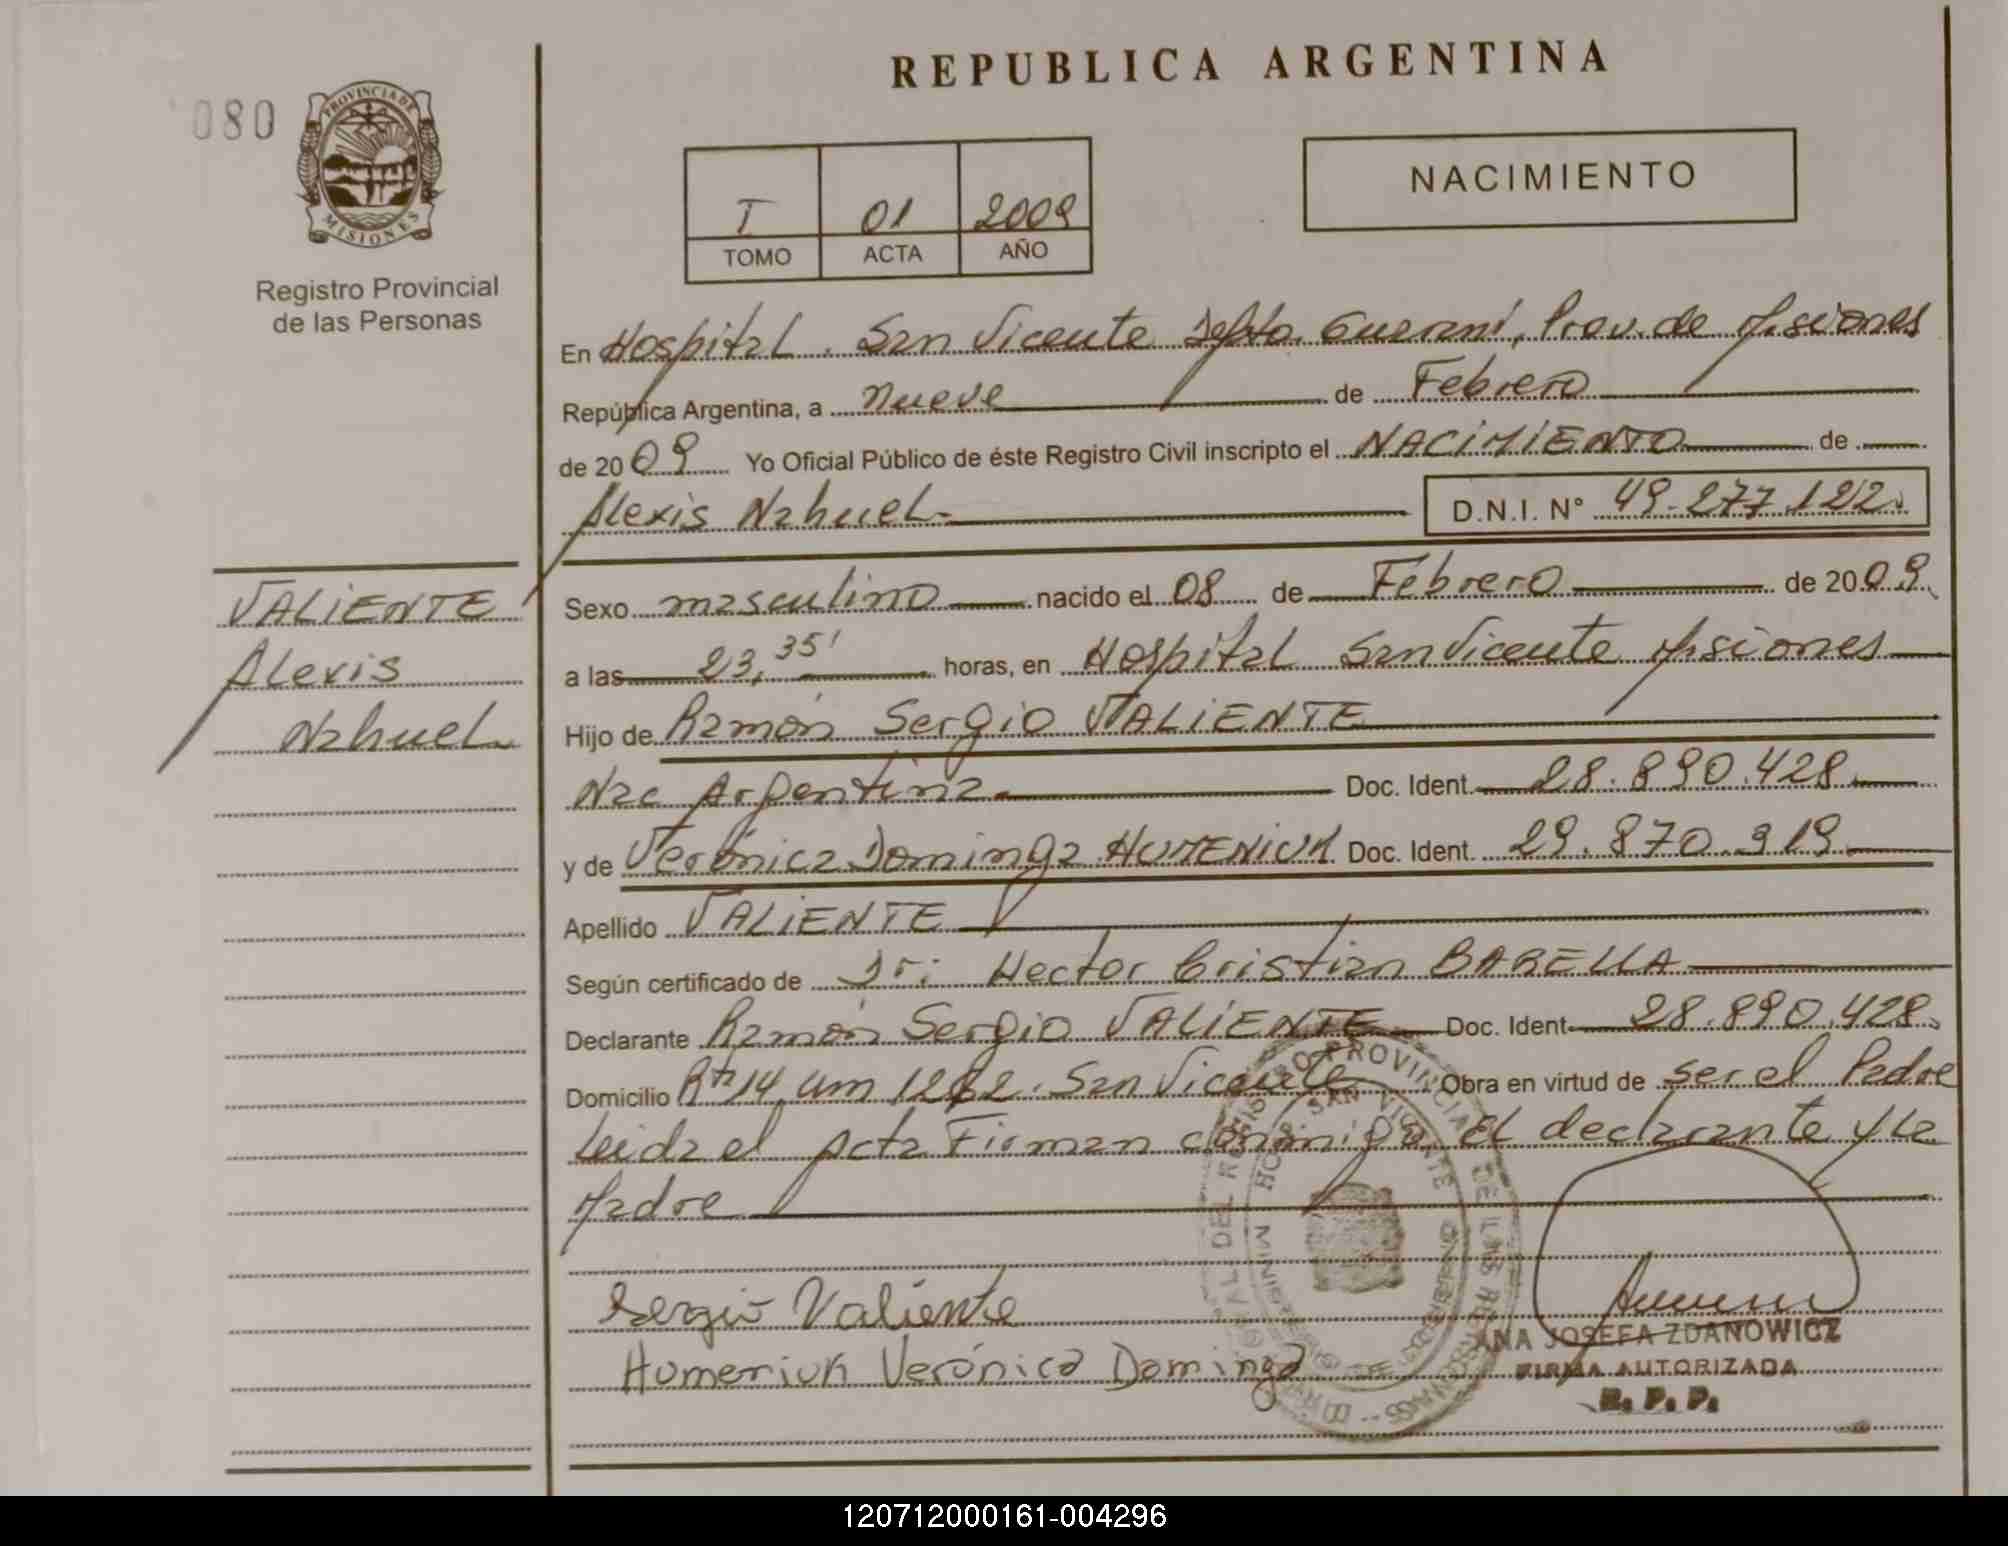 REPUBLICA ARGENTINA
080
PROVINCIA DE
MISIONES
Registro Provincial
de las Personas
I 01 2009
TOMO ACTA AÑO
NACIMIENTO
En Hospital. San Vicente Depto. Guaraní, Prov. de Misiones
República Argentina, a nueve de Febrero
de 2009 Yo Oficial Público de éste Registro Civil inscripto el NACIMIENTO de
Alexis Nahuel. D.N.I. N° 49.277.122.
VALIENTE
Alexis
Nahuel.
Sexo masculino nacido el 08 de Febrero de 2009.
a las 23,35' horas, en Hospital San Vicente Misiones
Hijo de Ramón Sergio VALIENTE
Nac Argentina. Doc. Ident. 28.890.428.
y de Verónica Dominga HUMENIUK Doc. Ident. 29.870.919.
Apellido VALIENTE
Según certificado de Dr: Hector Cristian BARELLA
Declarante Ramón Sergio VALIENTE Doc. Ident 28.890.428.
Domicilio Rta 14, Km 1262. San Vicente Obra en virtud de ser el Padre
Leida el Acta Firman conmigo El declarante y La
Madre
Sergio Valiente
Humeniuk Verónica Dominga
ANA JOSEFA ZDANOWICZ
FIRMA AUTORIZADA
R. P. P.
120712000161-004296